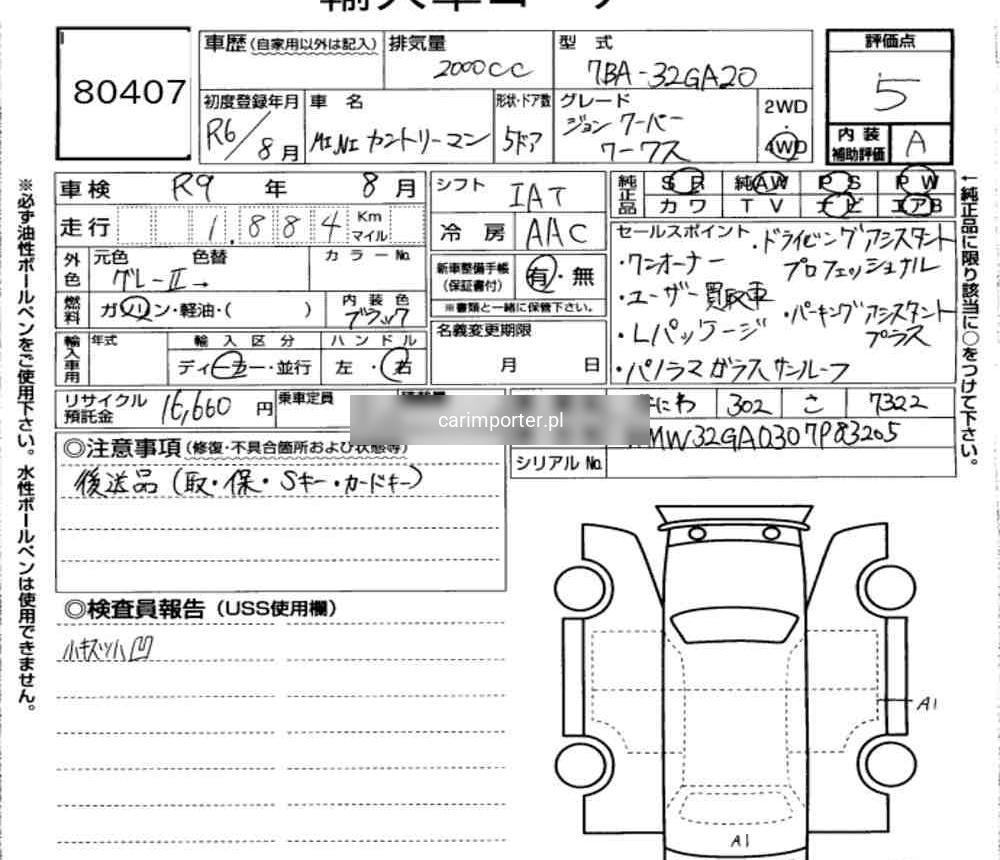 80407
車歴(自家用以外は記入) 排気量 2000CC 型式 7BA-32GA20
評価点 5
初度登録年月 R6/8月 車名 MINI カントリーマン 形状・ドア数 5ドア グレード ジョン ワーパー ワークス 2WD・4WD
内装補助評価 A
車検 R9年 8月 シフト IAT
純正品 SR 純AW PS PW
カワ TV ナビ エアB
走行 1.884 Km マイル 冷房 AAC
外色 元色 グレーⅡ→ 色替 カラーNo.
新車整備手帳(保証書付) 有・無
※書類と一緒に保管下さい。
燃料 ガソリン・軽油・( ) 内装色 ブラック
名義変更期限 月 日
輸入車用 年式 輸入区分 ディーラー・並行 ハンドル 左・右
セールスポイント ・ドライビングアシスタント
プロフェッショナル
・ワンオーナー
・ユーザー買取車
・パーキングアシスタント
プラス
・Lパッケージ
・パノラマガラスサンルーフ
リサイクル預託金 16,660円 乗車定員
なにわ 302 さ 7322
carimporter.pl
MW32GA0307P83205
シリアルNo.
◎注意事項(修復・不具合箇所および状態等)
後送品(取・保・Sキー・カードキー)
◎検査員報告(USS使用欄)
小キズ小凹
A1
A1
※必ず油性ボールペンをご使用下さい。水性ボールペンは使用できません。
←純正品に限り該当に○をつけて下さい。